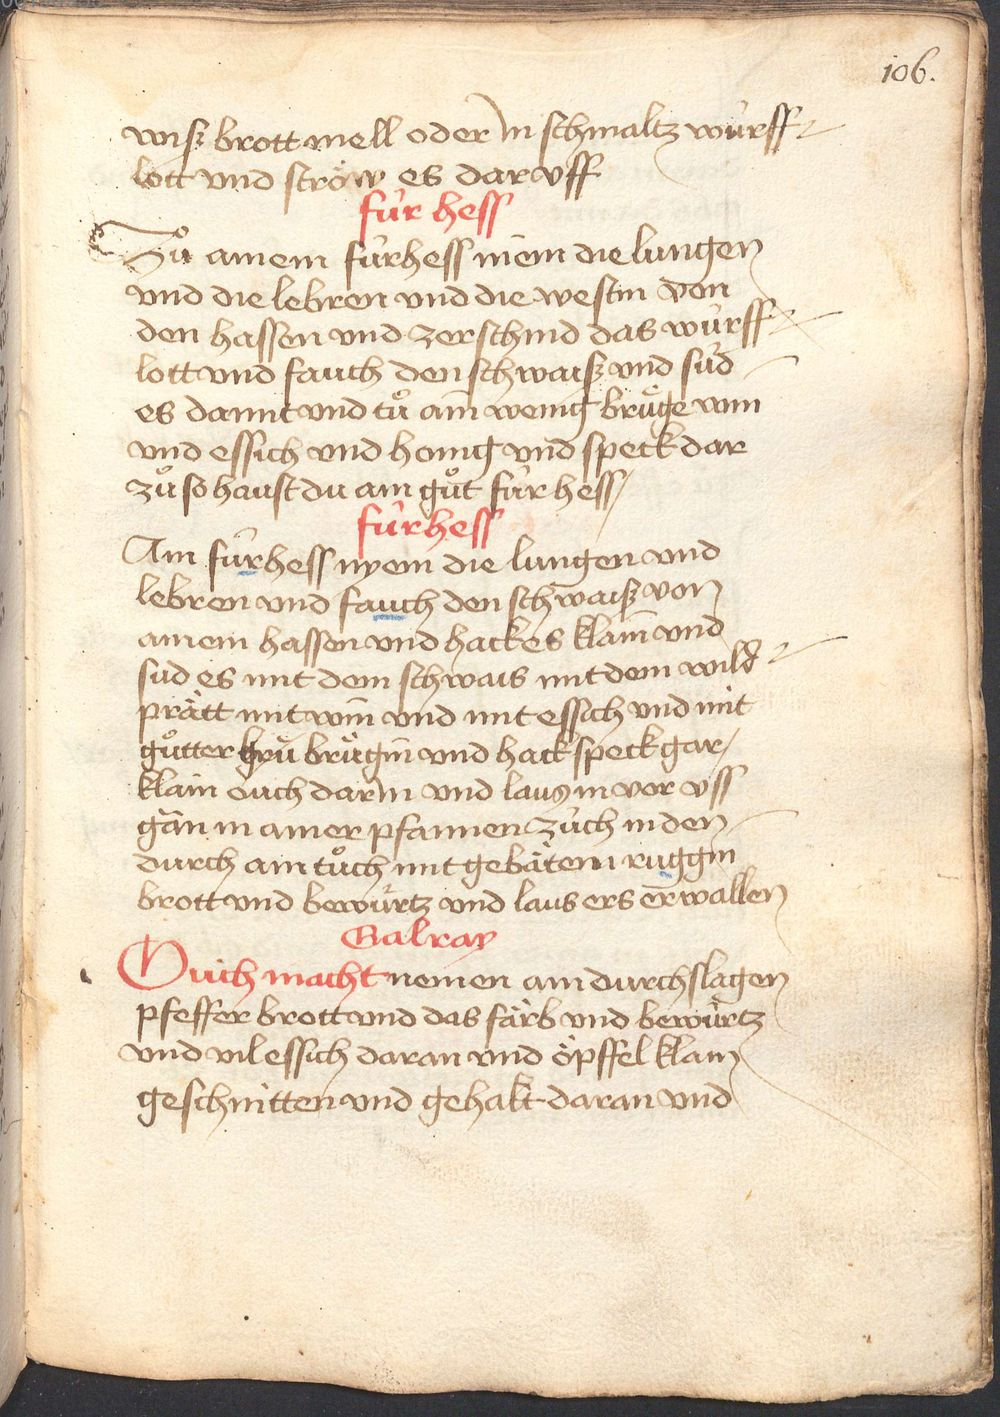 106.
wisz brott mell oder in schmaltz würff
lott vnd ströw es dar vff
für hess
Zů ainem fürhess niem die lungen
vnd die lebren vnd die westin von
den hassen vnd zerschnid das würff
lott vnd fauch den schwaisz vnd süd
es damit vnd tů ain wenig brüge win
vnd essich vnd honig vnd speck dar
zů so haust du ain gůt für hess
fürhess
Ain fürhess nyem die lungen vnd
lebren vnd fauch den schwaisz von
ainem hassen vnd hack es klain vnd
süd es mit dem schwais mit dem wild
prätt mit win vnd mit essich vnd mit
gůtter brügin vnd hack speck gar
klain ouch darin vnd laus in vor vss
gän in ainer pfannen züch in den
durch ain tůch mit gebätem ruggin
brott vnd bewürtz vnd laus ers erwallen
Galray
Ouch macht nemen ain durchslagen
pfeffer brott vnd das färb vnd bewürtz
vnd vil essich daran vnd öpffel klain
geschnitten vnd gehakt daran vnd